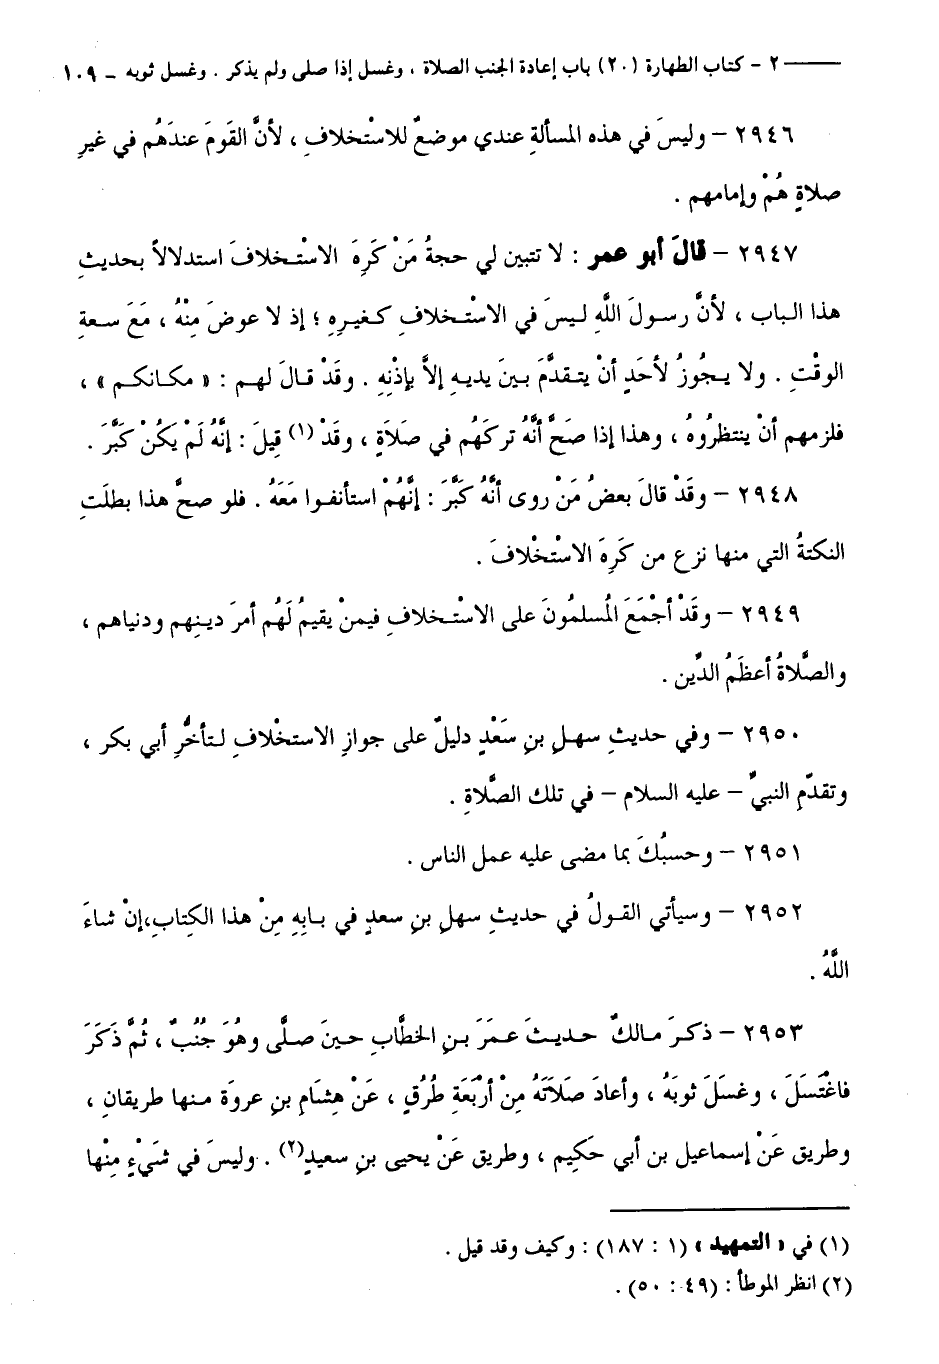 ٢ - كتاب الطهارة (٢٠) باب إعادة الجنب الصلاة ، وغسل إذا صلى ولم يذكر . وغسل ثوبه - ١٠٩
٢٩٤٦ - وليسَ في هذه المسألةِ عندي موضعٌ للاسْتخلافِ ، لأنَّ القَومَ عندَهُم في غيرِ
صلاةٍ هُمْ وإمامهم .
٢٩٤٧ - قالَ أبو عمر : لا تتبين لي حجةُ مَنْ كَرِهَ الاسْتخلافَ استدلالاً بحديثِ
هذا الباب ، لأنَّ رسولَ اللَّهِ ليسَ في الاسْتخلافِ كغيرِهِ ؛ إذ لا عوضَ مِنْهُ ، مَعَ سعةِ
الوقْتِ . ولا يجُوزُ لأحَدٍ أنْ يتقدَّمَ بينَ يديهِ إلاَّ بإذْنِهِ . وقَدْ قالَ لهم : « مكانكم » ،
فلزمهم أنْ ينتظرُوهُ ، وهذا إذا صَحَّ أنَّهُ تركَهُم في صَلاَةٍ ، وقَدْ (١) قيلَ : إنَّهُ لَمْ يَكُنْ كَبَّرَ .
٢٩٤٨ - وقَدْ قالَ بعضُ مَنْ روى أنَّهُ كَبَّرَ : إنَّهُمْ استأنفوا مَعَهُ . فلو صحَّ هذا بطلَتِ
النكتةُ التي منها نزع من كَرِهَ الاسْتخْلافَ .
٢٩٤٩ - وقَدْ أجْمَعَ المُسلمُونَ على الاسْتخلافِ فيمنْ يقيمُ لَهُم أمرَ دينِهم ودنياهم ،
والصَّلاةُ أعظَمُ الدِّين .
٢٩٥٠ - وفي حديثِ سهلِ بنِ سَعْدٍ دليلٌ على جوازِ الاستخْلافِ لتأخُّرِ أبي بكر ،
وتقدّمِ النبيِّ - عليه السلام - في تلك الصَّلاةِ .
٢٩٥١ - وحسبُكَ بما مضى عليه عمل الناس .
٢٩٥٢ - وسيأتي القولُ في حديثِ سهلِ بنِ سعدٍ في بابِهِ مِنْ هذا الكِتابِ،إنْ شاءَ
اللَّهُ .
٢٩٥٣ - ذكرَ مالكٌ حديثَ عمَرَ بنِ الخطَّابِ حينَ صلَّى وهُوَ جُنُبٌ ، ثُمَّ ذَكَرَ
فاغْتَسَلَ ، وغسَلَ ثوبَهُ ، وأعادَ صَلاَتَهُ مِنْ أرْبَعَةِ طُرُقٍ ، عَنْ هِشَامِ بنِ عروةَ منها طريقانِ ،
وطريق عَنْ إسماعيل بن أبي حَكِيم ، وطريق عَنْ يحيى بنِ سعيدٍ(٢) . وليسَ في شَيْءٍ مِنْها
(١) في « التمهيد » (١ : ١٨٧) : وكيف وقد قيل .
(٢) انظر الموطأ : (٤٩ : ٥٠) .